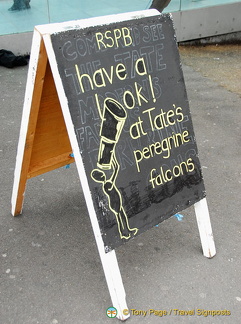 RSPB
have a
look!
at Tate's
peregrine
falcons
©Tony Page / Travel Signposts